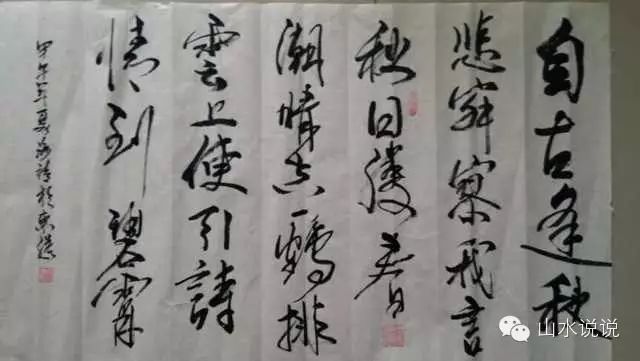 自古逢秋
悲寂寥我言
秋日勝春
潮晴空一鶴排
雲上便引詩
情到碧霄
甲午年夏
山水说说